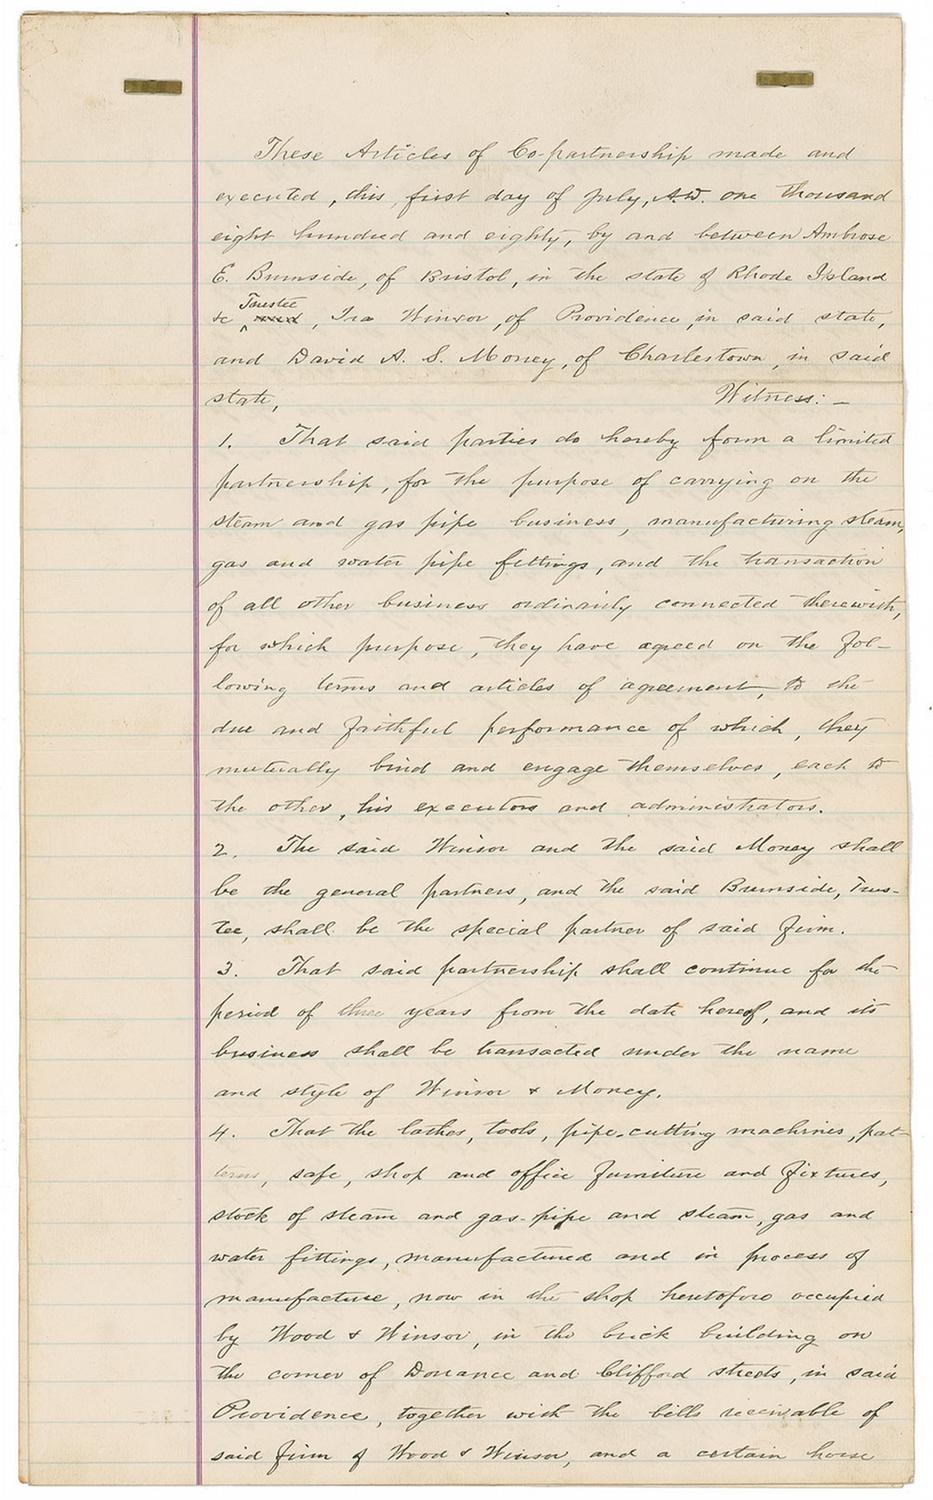 These Articles of Co-partnership made and
executed, this, first day of July, A.D. one thousand
eight hundred and eighty, by and between Ambrose
E. Burnside, of Bristol, in the state of Rhode Island
Trustee
&c , Ira Winsor, of Providence, in said state,
and David A. S. Money, of Charlestown, in said
state, Witness: –
1. That said parties do hereby form a limited
partnership, for the purpose of carrying on the
steam and gas pipe business, manufacturing steam,
gas and water pipe fittings, and the transaction
of all other business ordinarily connected therewith,
for which purpose, they have agreed on the fol-
lowing terms and articles of agreement, to the
due and faithful performance of which, they
mutually bind and engage themselves, each to
the other, his executors and administrators.
2. The said Winsor and the said Money shall
be the general partners, and the said Burnside, Trus-
tee, shall be the special partner of said firm.
3. That said partnership shall continue for the
period of three years from the date hereof, and its
business shall be transacted under the name
and style of Winsor & Money.
4. That the lathes, tools, pipe-cutting machines, pat-
terns, safe, shop and office furniture and fixtures,
stock of steam and gas-pipe and steam, gas and
water fittings, manufactured and in process of
manufacture, now in the shop heretofore occupied
by Wood & Winsor, in the brick building on
the corner of Dorrance and Clifford streets, in said
Providence, together with the bills receivable of
said firm of Wood & Winsor, and a certain horse